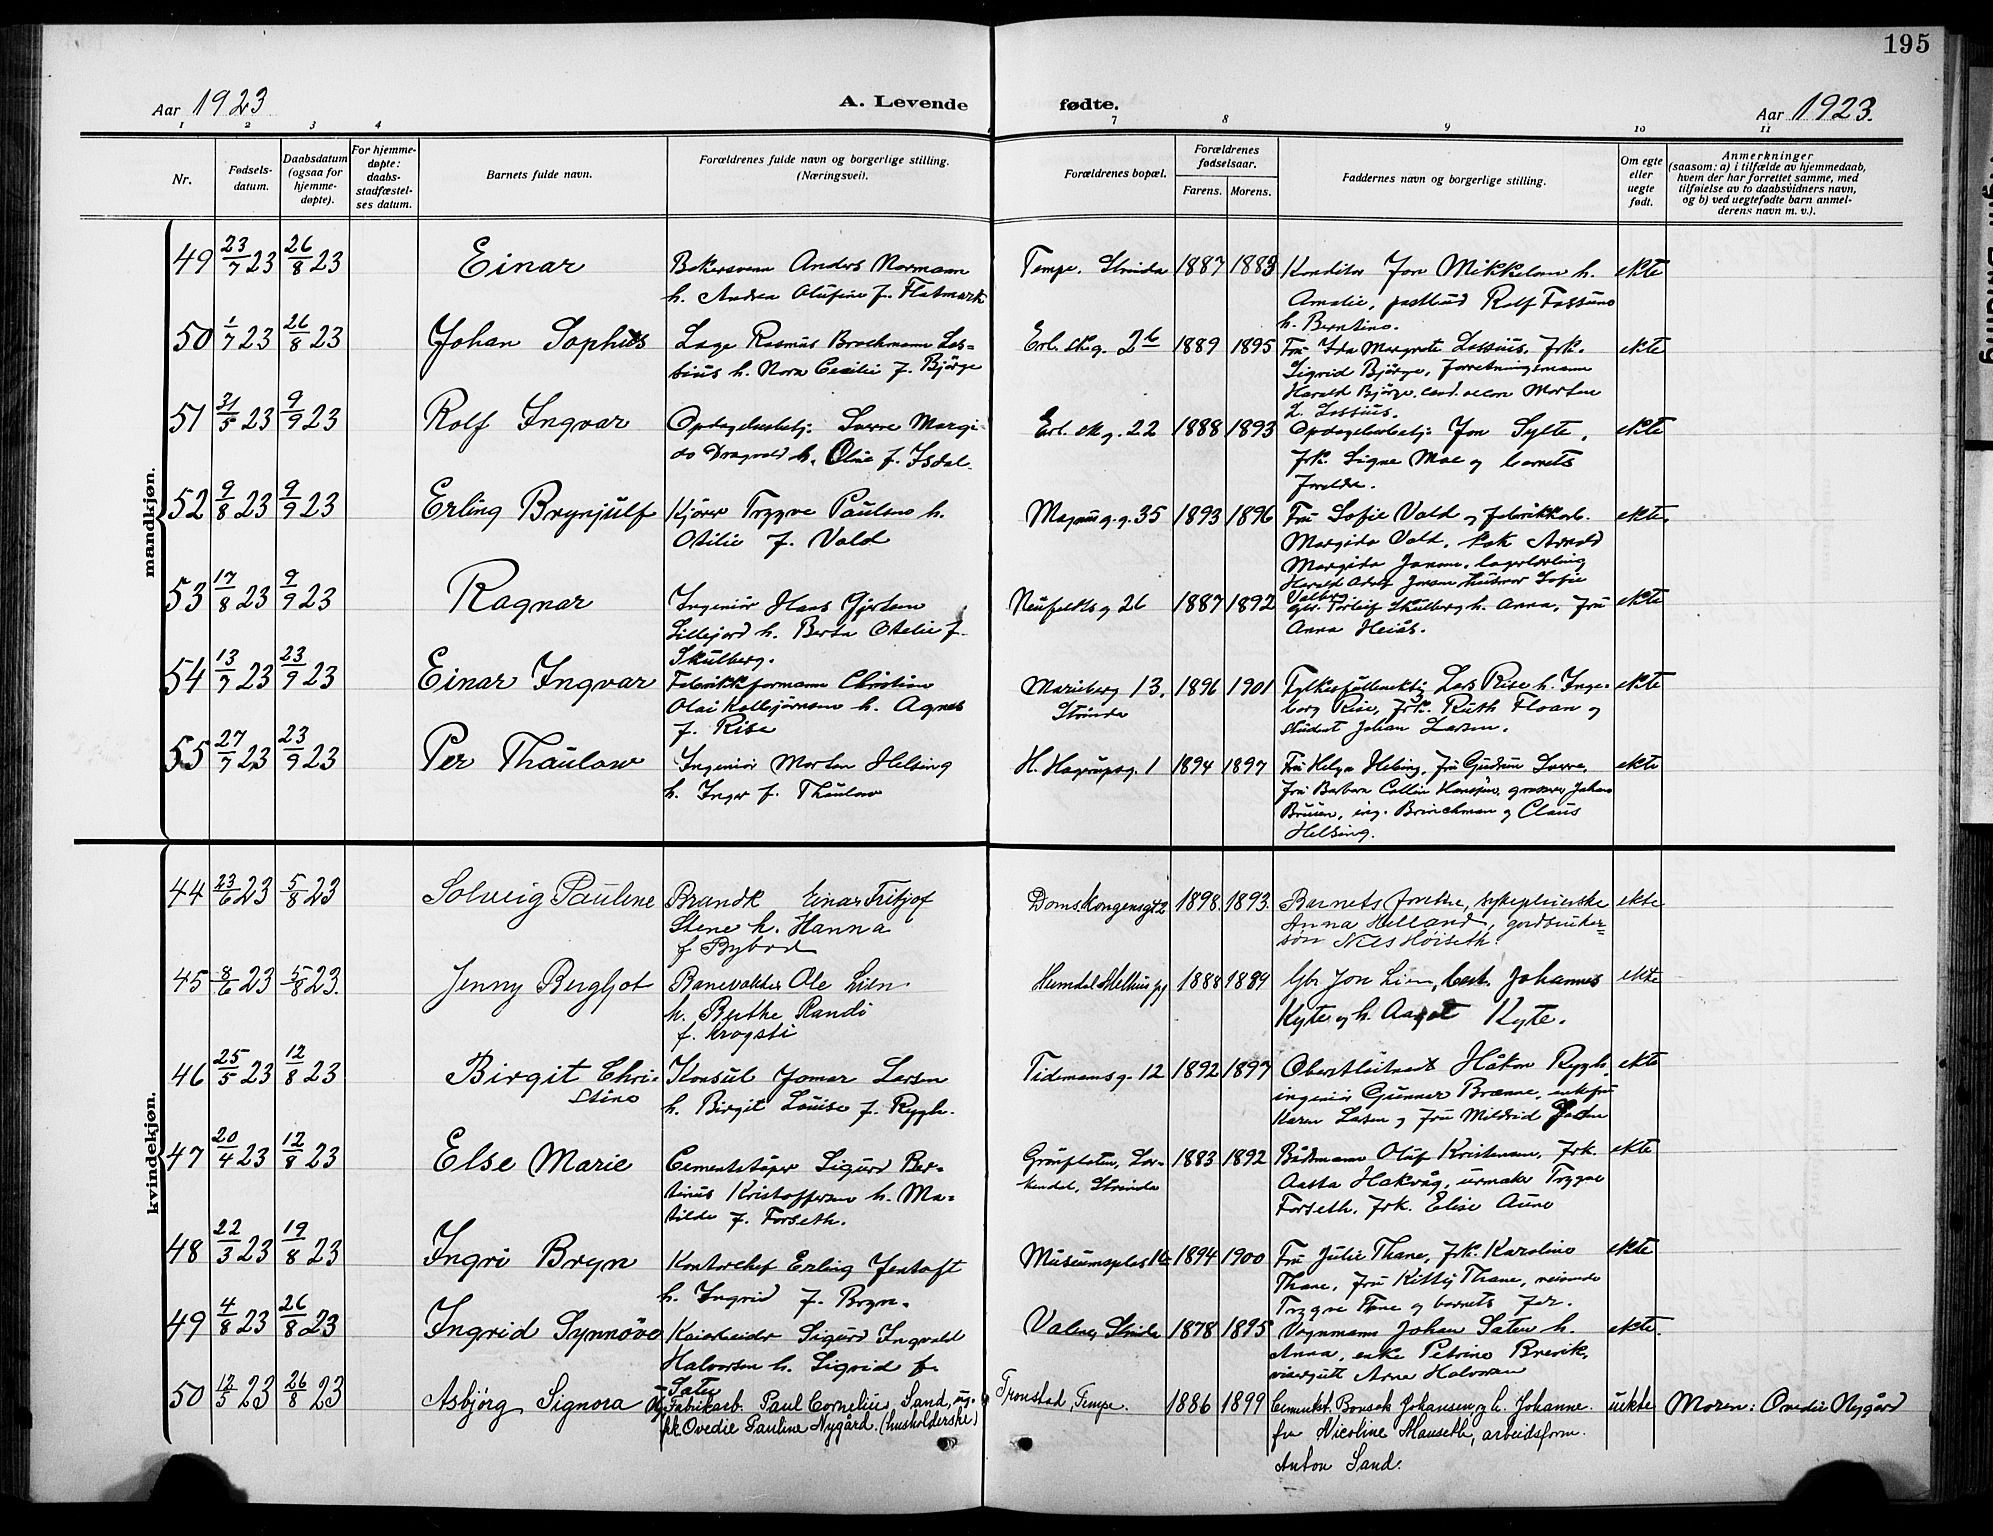 195
Aar 1923
A. Levende
fødte.
Aar 1923.
1 2 3 4 7 8 9 10 11
Nr.
Fødsels-
datum.
Daabsdatum
(ogsaa for
hjemme-
døpte).
For hjemme-
døpte:
daabs-
stadfæstel-
ses datum.
Barnets fulde navn.
Forældrenes fulde navn og borgerlige stilling.
(Næringsvei).
Forældrenes bopæl.
Forældrenes
fødselsaar.
Farens. Morens.
Faddernes navn og borgerlige stilling.
Om egte
eller
uegte
født.
Anmerkninger
(saasom: a) i tilfælde av hjemmedaab,
hvem der har forrettet samme, med
tilføielse av to daabsvidners navn,
og b) ved uegtefødte barn anmel-
derens navn m. v.).
mandkjøn.
49 23/7 23 26/8 23 Einar
Bakersvenn Anders Normann
h. Andrea Olufine f. Flatmark
Tempe. Strinda 1887 1883
Konditor Jon Mikkelsen h.
Amalie, postbud Rolf
h. Berntine.
ekte
50 1/7 23 26/8 23 Johan Sophus
Læge Rasmus Brochmann Los-
sius h. Nora Cecilie f. Bjørge
Erl. Sk. g. 2b 1889 1895
Fru Ida Margrete Lossius, Frk.
Sigrid Bjørge, forretningsmann
Harald Bjørge, cand. oecon Morten
L. Lossius.
ekte
51 31/5 23 9/9 23 Rolf Ingvar
Opdagelsesbetj. Sverre Margi-
do Dragvold h. Oline f. Isdal
Erl. Sk. g. 22 1888 1893
Opdagelsesbetj. Jon Sylte,
frk. Signe Moe og barnets
foreldre.
ekte
52 9/8 23 9/9 23 Erling Brynjulf
Kjører Trygve Paulsen h.
Otilie f. Vold
Magnus g. g. 35 1893 1896
Fru Sofie Vold og fabrikkarb.
Margido Vold, kok Arnold
Margido Jensen, lagerlærling
Harald Adolf Jensen husmor Sofie
Valberg
ekte.
53 17/8 23 9/9 23 Ragnar
Ingeniør Hans Gjertsen
Lillefjord h. Berta Otelie f.
Skulberg.
Neufeldts g 26 1887 1892
gbr. Torleif Skulberg h. Anna, Fru
Anna Heiås.
ekte
54 13/7 23 23/9 23 Einar Ingvar
Fabrikkformann Christian
Olai Kolbjørnsen h. Agnes
f. Rise
Marieberg 13. Strinda 1896 1901
Fylkesfullmektig Lars Rise h. Inge-
borg Rise, frk. Ruth Floan og
student Johan Larsen.
ekte
55 27/7 23 23/9 23 Per Thaulow
Ingeniør Morten Helsing
h. Inger f. Thaulow
H. Hagrupsg. 1 1894 1897
Fru Helga Helsing, fru Gudrun Sverre,
Fru Barbara Collin Hansson, grosserer Johan
Bruun, ing. Brinchman og Claus
Helsing.
ekte
kvindekjøn.
44 23/6 23 5/8 23 Solveig Pauline
Brandk Einar Fritjof
Stene h. Hanna
f Bybrod
Doms. Kongensgt 2 1898 1893.
Barnets foreldre, sykepleierske
Anna Helland, gårdbruker-
søn Nils Høiseth.
ekte
45 8/6 23 5/8 23. Jenny Bergljot
Banevokter Ole Lien
h. Berthe Randi
f. Krogsti
Heimdal Melhus pg 1888 1884
Gbr Jon Lien, best. Johannes
Kyte og h. Aagot Kyte.
ekte
46 25/5 23 12/8 23 Birgit Chri-
stine
Konsul Jomar Larsen
h. Birgit Louise f. Rygh.
Tidemansg. 12 1892 1897
Oberstløitnant Håkon Rygh.
ingeniør Gunnar Brænne, enkefru
Karen Larsen og fru Mildrid
ekte
47 20/4 23 12/8 23 Else Marie
Cementstøper Sigurd Ber-
tinus Kristoffersen h. Ma-
tilde f. Forseth.
Grønsleten, Ler-
kendal, Strinda 1883 1892
Båtsmann Oluf Kristensen, Frk.
Aasta Hakvåg, urmaker Trygve
Forseth, frk. Elise Aune
ekte
48 22/3 23 19/8 23 Ingri Bryn
Kontorchef Erling Jentoft
h. Ingrid f. Bryn.
Museumsplas 1b 1894 1900
Fru Julie Thane, frk. Karoline
Thane, fru Kitty Thane, reisende
Trygve Tane og barnets far.
ekte
49 4/8 23 26/8 23 Ingrid Synnöve
Kaiarbeider Sigurd Ingvald
Halvorsen h. Sigrid f.
Sæter
Valene, Strinda 1878 1895
Vognmann Johan Sæter h.
Anna, enke Petrine Brevik,
visergutt Arne Halvorsen
ekte.
50 12/5 23 26/8 23 Asbjörg Signora
Fabikarb. Paul Cornelius Sand, ug. og
pk. Ovedie Pauline Nygård. (husholderske)
Tronstad, Tempe. 1886 1899
Cementst. Bonsak Johansen og h. Johanne.
fru Nicoline Mauseth, arbeidsform.
Anton Sand.
uekte
Moren: Ovedie Nygård